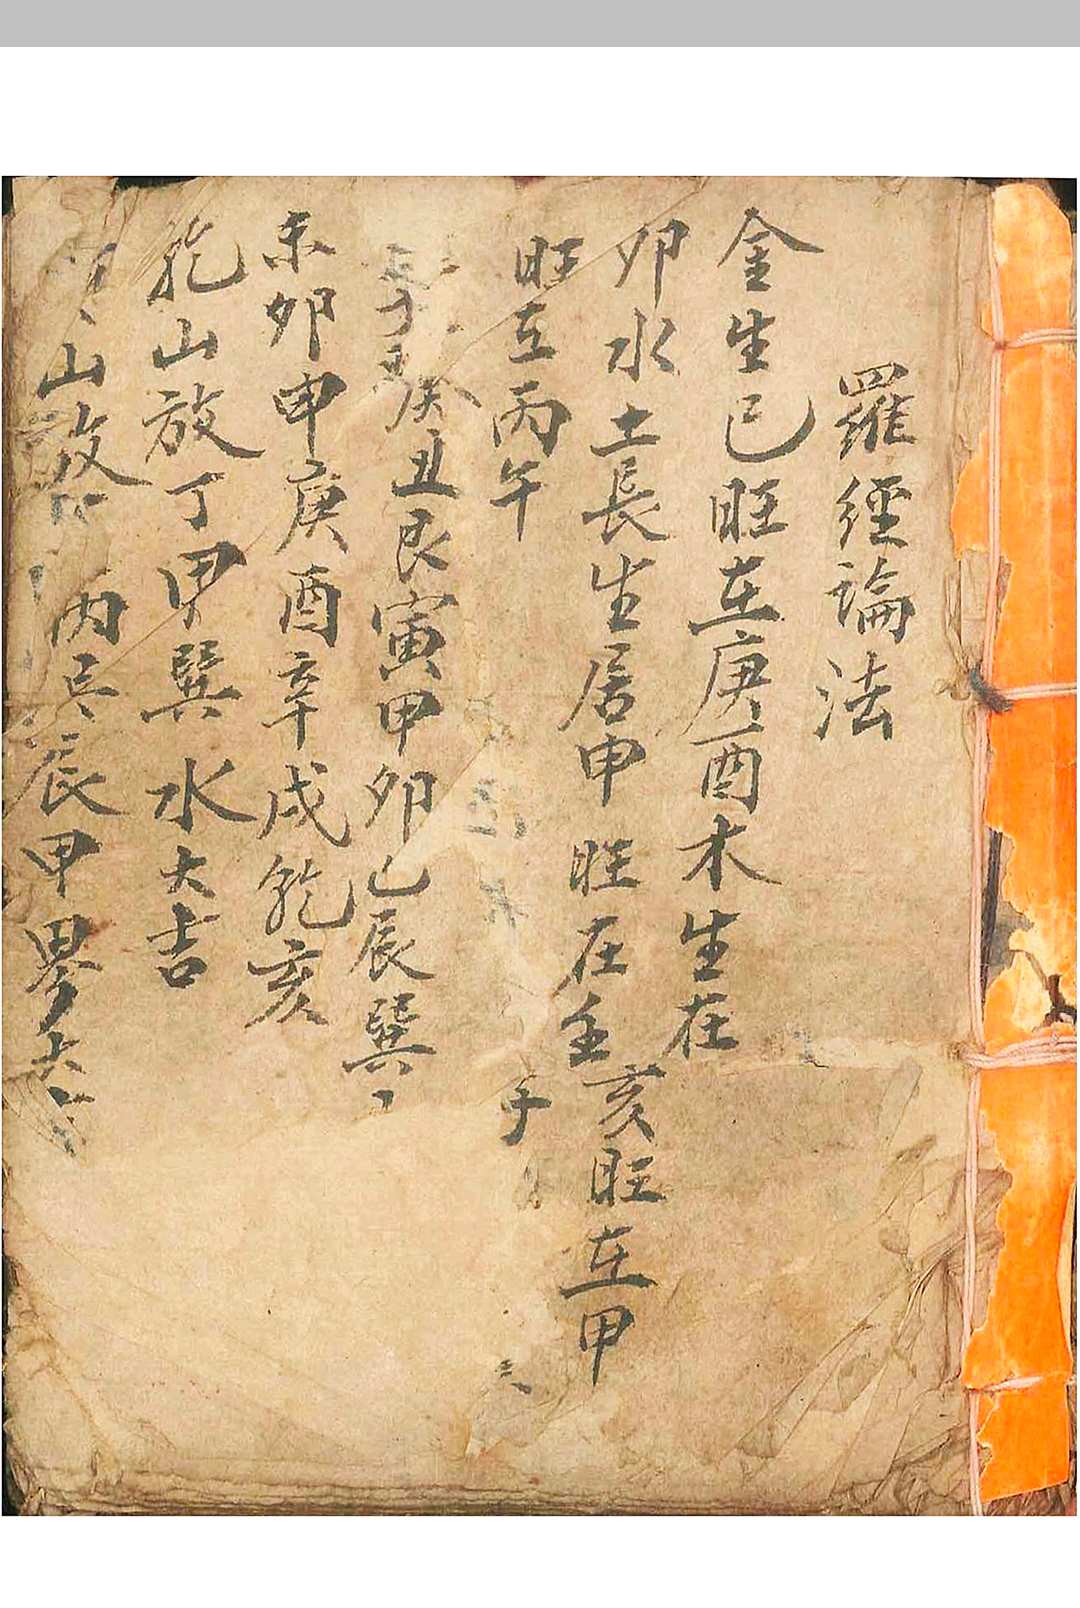 羅經論法
金生巳旺在庚酉木生在
亥旺在甲
卯水土長生居申旺在壬
子
旺在丙午
癸丑艮寅甲卯乙辰巽
未卯申庚酉辛戌乾亥
乾山放丁甲巽水大吉
山放 丙 辰甲